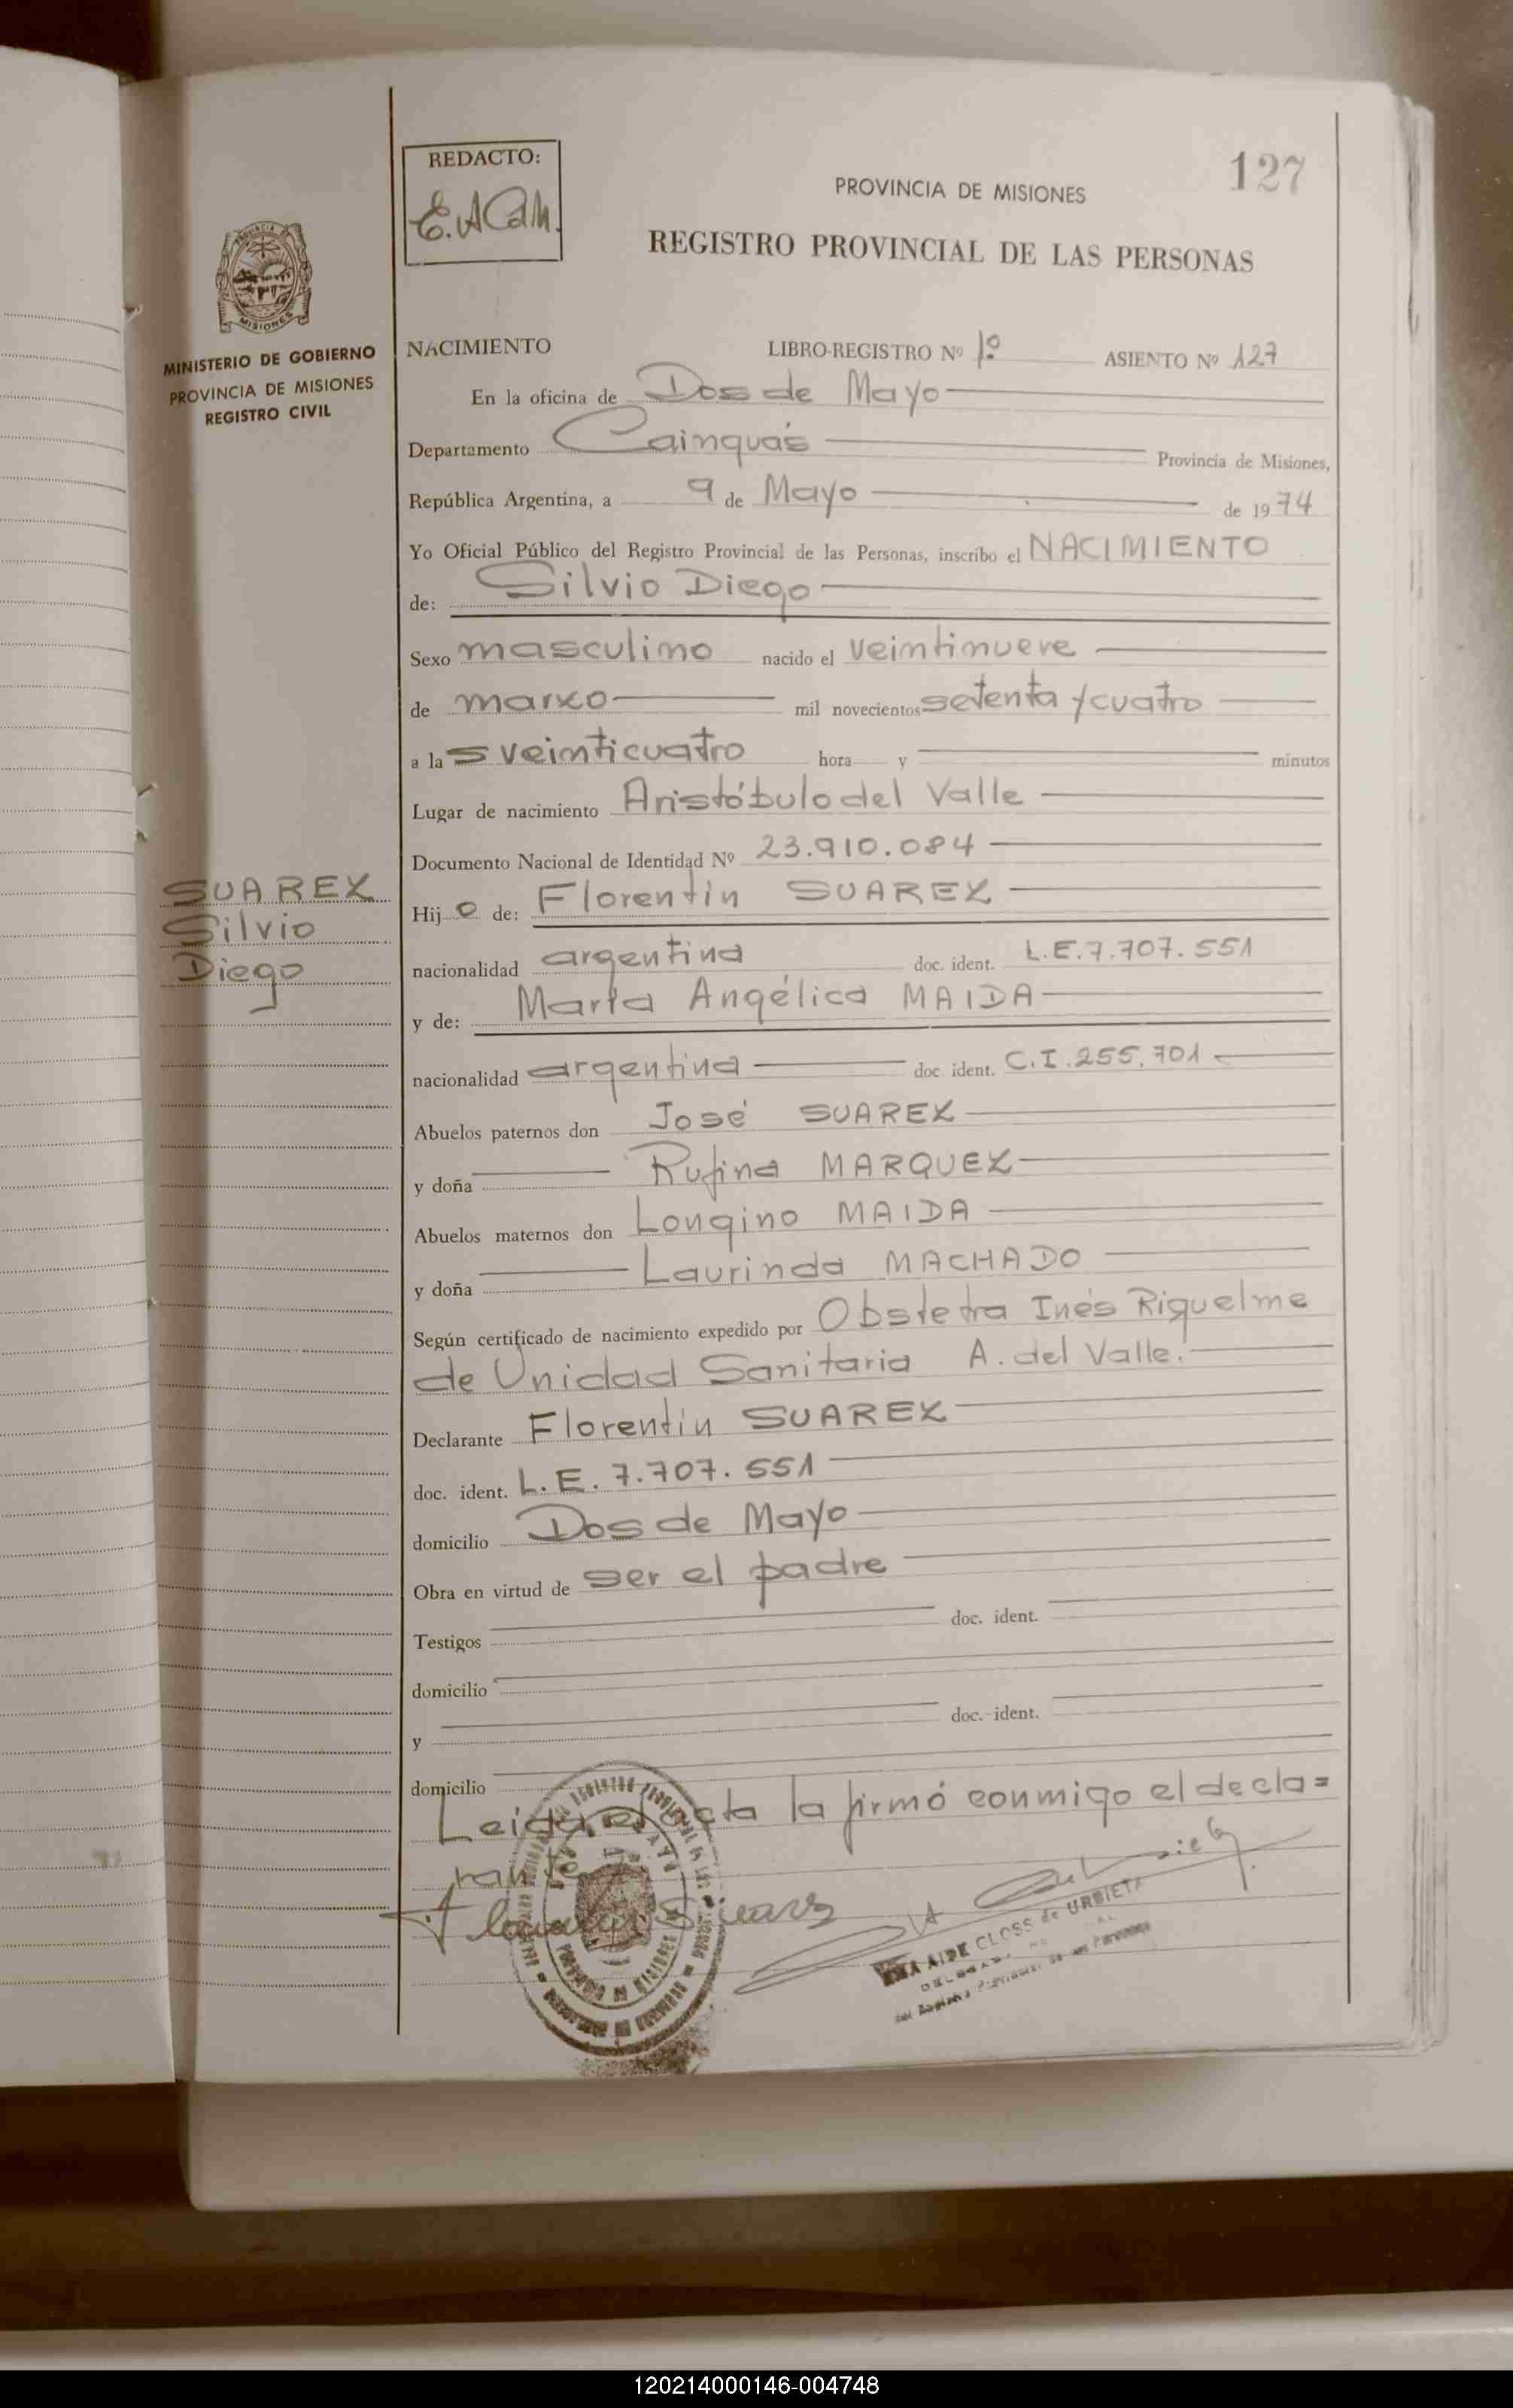 127
REDACTO:
E.ACaM.
PROVINCIA DE MISIONES
REGISTRO PROVINCIAL DE LAS PERSONAS
PROVINCIA
MISIONES
MINISTERIO DE GOBIERNO
PROVINCIA DE MISIONES
REGISTRO CIVIL
NACIMIENTO LIBRO-REGISTRO Nº 1º ASIENTO Nº 127
En la oficina de Dos de Mayo
Departamento Cainquás Provincia de Misiones,
República Argentina, a 9 de Mayo de 1974
Yo Oficial Público del Registro Provincial de las Personas, inscribo el NACIMIENTO
de: Silvio Diego
Sexo masculino nacido el veintinueve
de marzo mil novecientos setenta y cuatro
a las veinticuatro hora y minutos
Lugar de nacimiento Aristóbulo del Valle
Documento Nacional de Identidad Nº 23.910.084
SUAREZ
Silvio
Diego
Hijo de: Florentín SUAREZ
nacionalidad argentina doc. ident. L.E.7.707.551
y de: María Angélica MAIDA
nacionalidad argentina doc. ident. C.I.255.701
Abuelos paternos don José SUAREZ
y doña Rufina MARQUEZ
Abuelos maternos don Longino MAIDA
y doña Laurinda MACHADO
Según certificado de nacimiento expedido por Obstetra Inés Riquelme
de Unidad Sanitaria A. del Valle.
Declarante Florentín SUAREZ
doc. ident. L.E. 7.707.551
domicilio Dos de Mayo
Obra en virtud de ser el padre
Testigos doc. ident.
domicilio
y doc. ident.
domicilio
Leída el acta la firmó conmigo el decla=
rante
Suarez
AIDE CLOSS de URBIETA
120214000146-004748